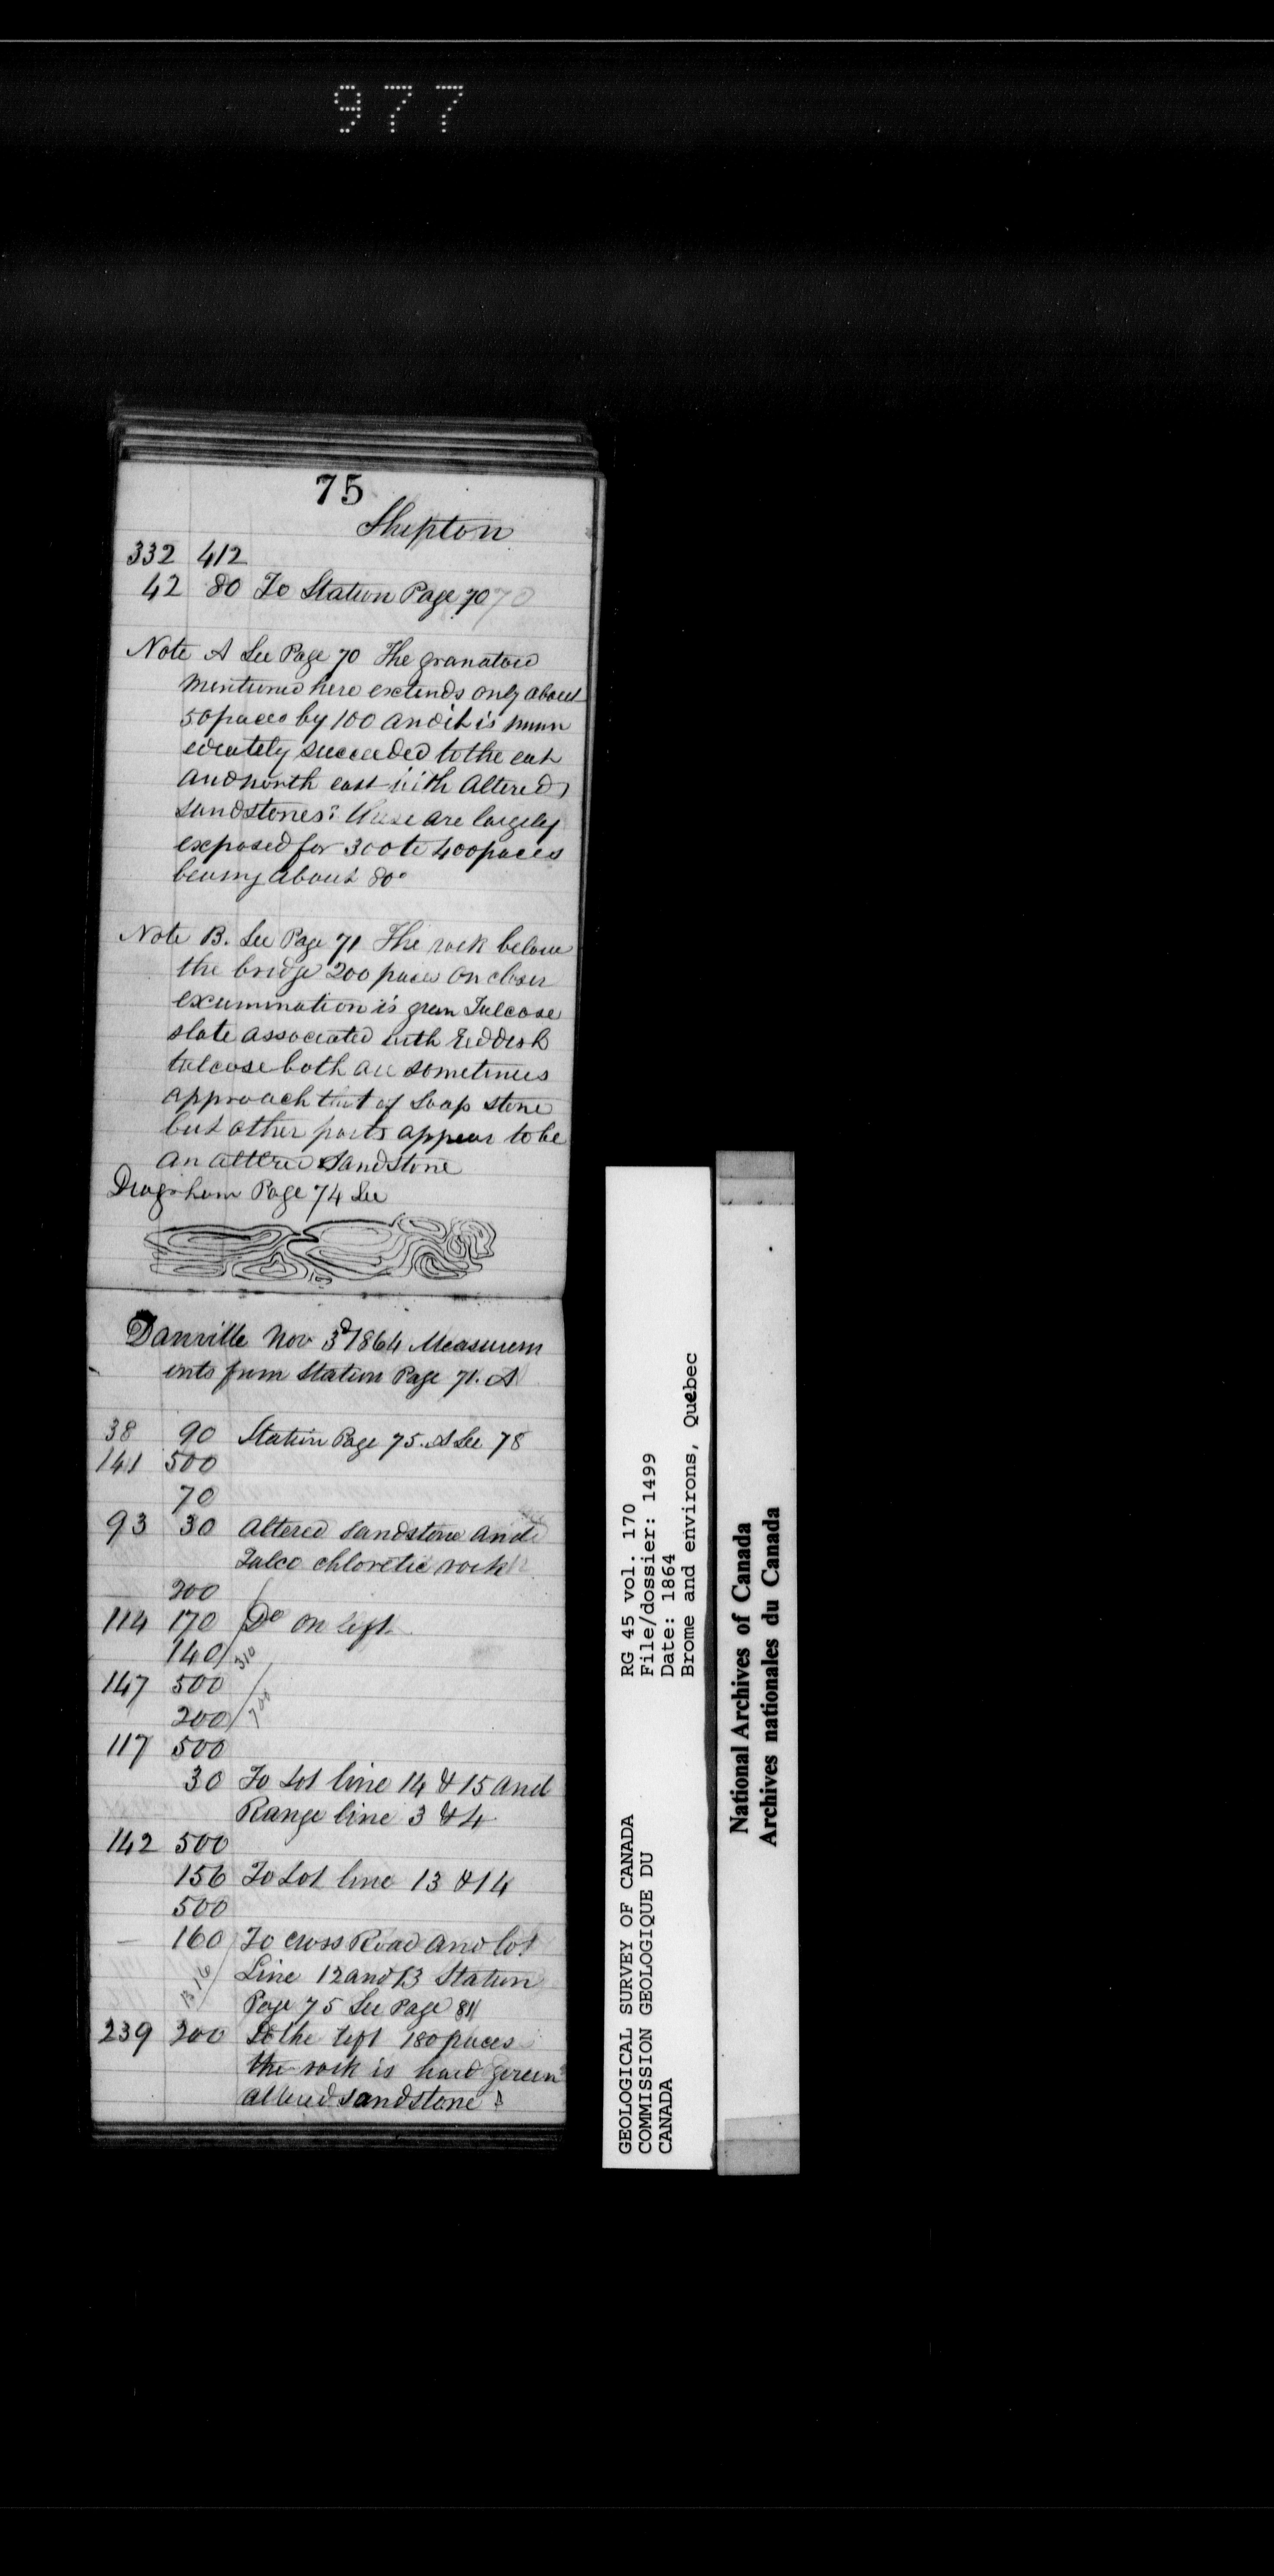 977
75
Shipton
332 412
42 80 To Station Page 70 70
Note A See Page 70 The
mentioned here extends only about
50 paces by 100 and it is imm
ediately succeeded to the east
and north east with altered
sandstones: these are largely
exposed for 300 to 400 paces
bearing about 80°
Note B. See Page 71 The rock below
the bridge 200 paces on closer
examination is green Talcose
slate associated with Reddish
talcose both are sometimes
approach that of Soap stone
but other parts appear to be
an altered Sandstone
Page 74 See
Danville Nov 3d 1864 Measurem
ents from Station Page 71. A
38 90 Station Page 75. A See 78
141 500
70
93 30 Altered sandstone and
Talco chloretic rock
200
114 170 Do on left
140 310
147 500
200 700
117 500
30 To Lot line 14 & 15 and
Range line 3 & 4
142 500
156 To Lot line 13 & 14
500
160 To cross Road and lot
Line 12 and 13 Station
Page 75 See Page 81
239 200 To the left 180 paces
the rock is hard green
altered sandstone
GEOLOGICAL SURVEY OF CANADA
COMMISSION GEOLOGIQUE DU
CANADA
RG 45 vol. 170
File/dossier: 1499
Date: 1864
Brome and environs, Quebec
National Archives of Canada
Archives nationales du Canada